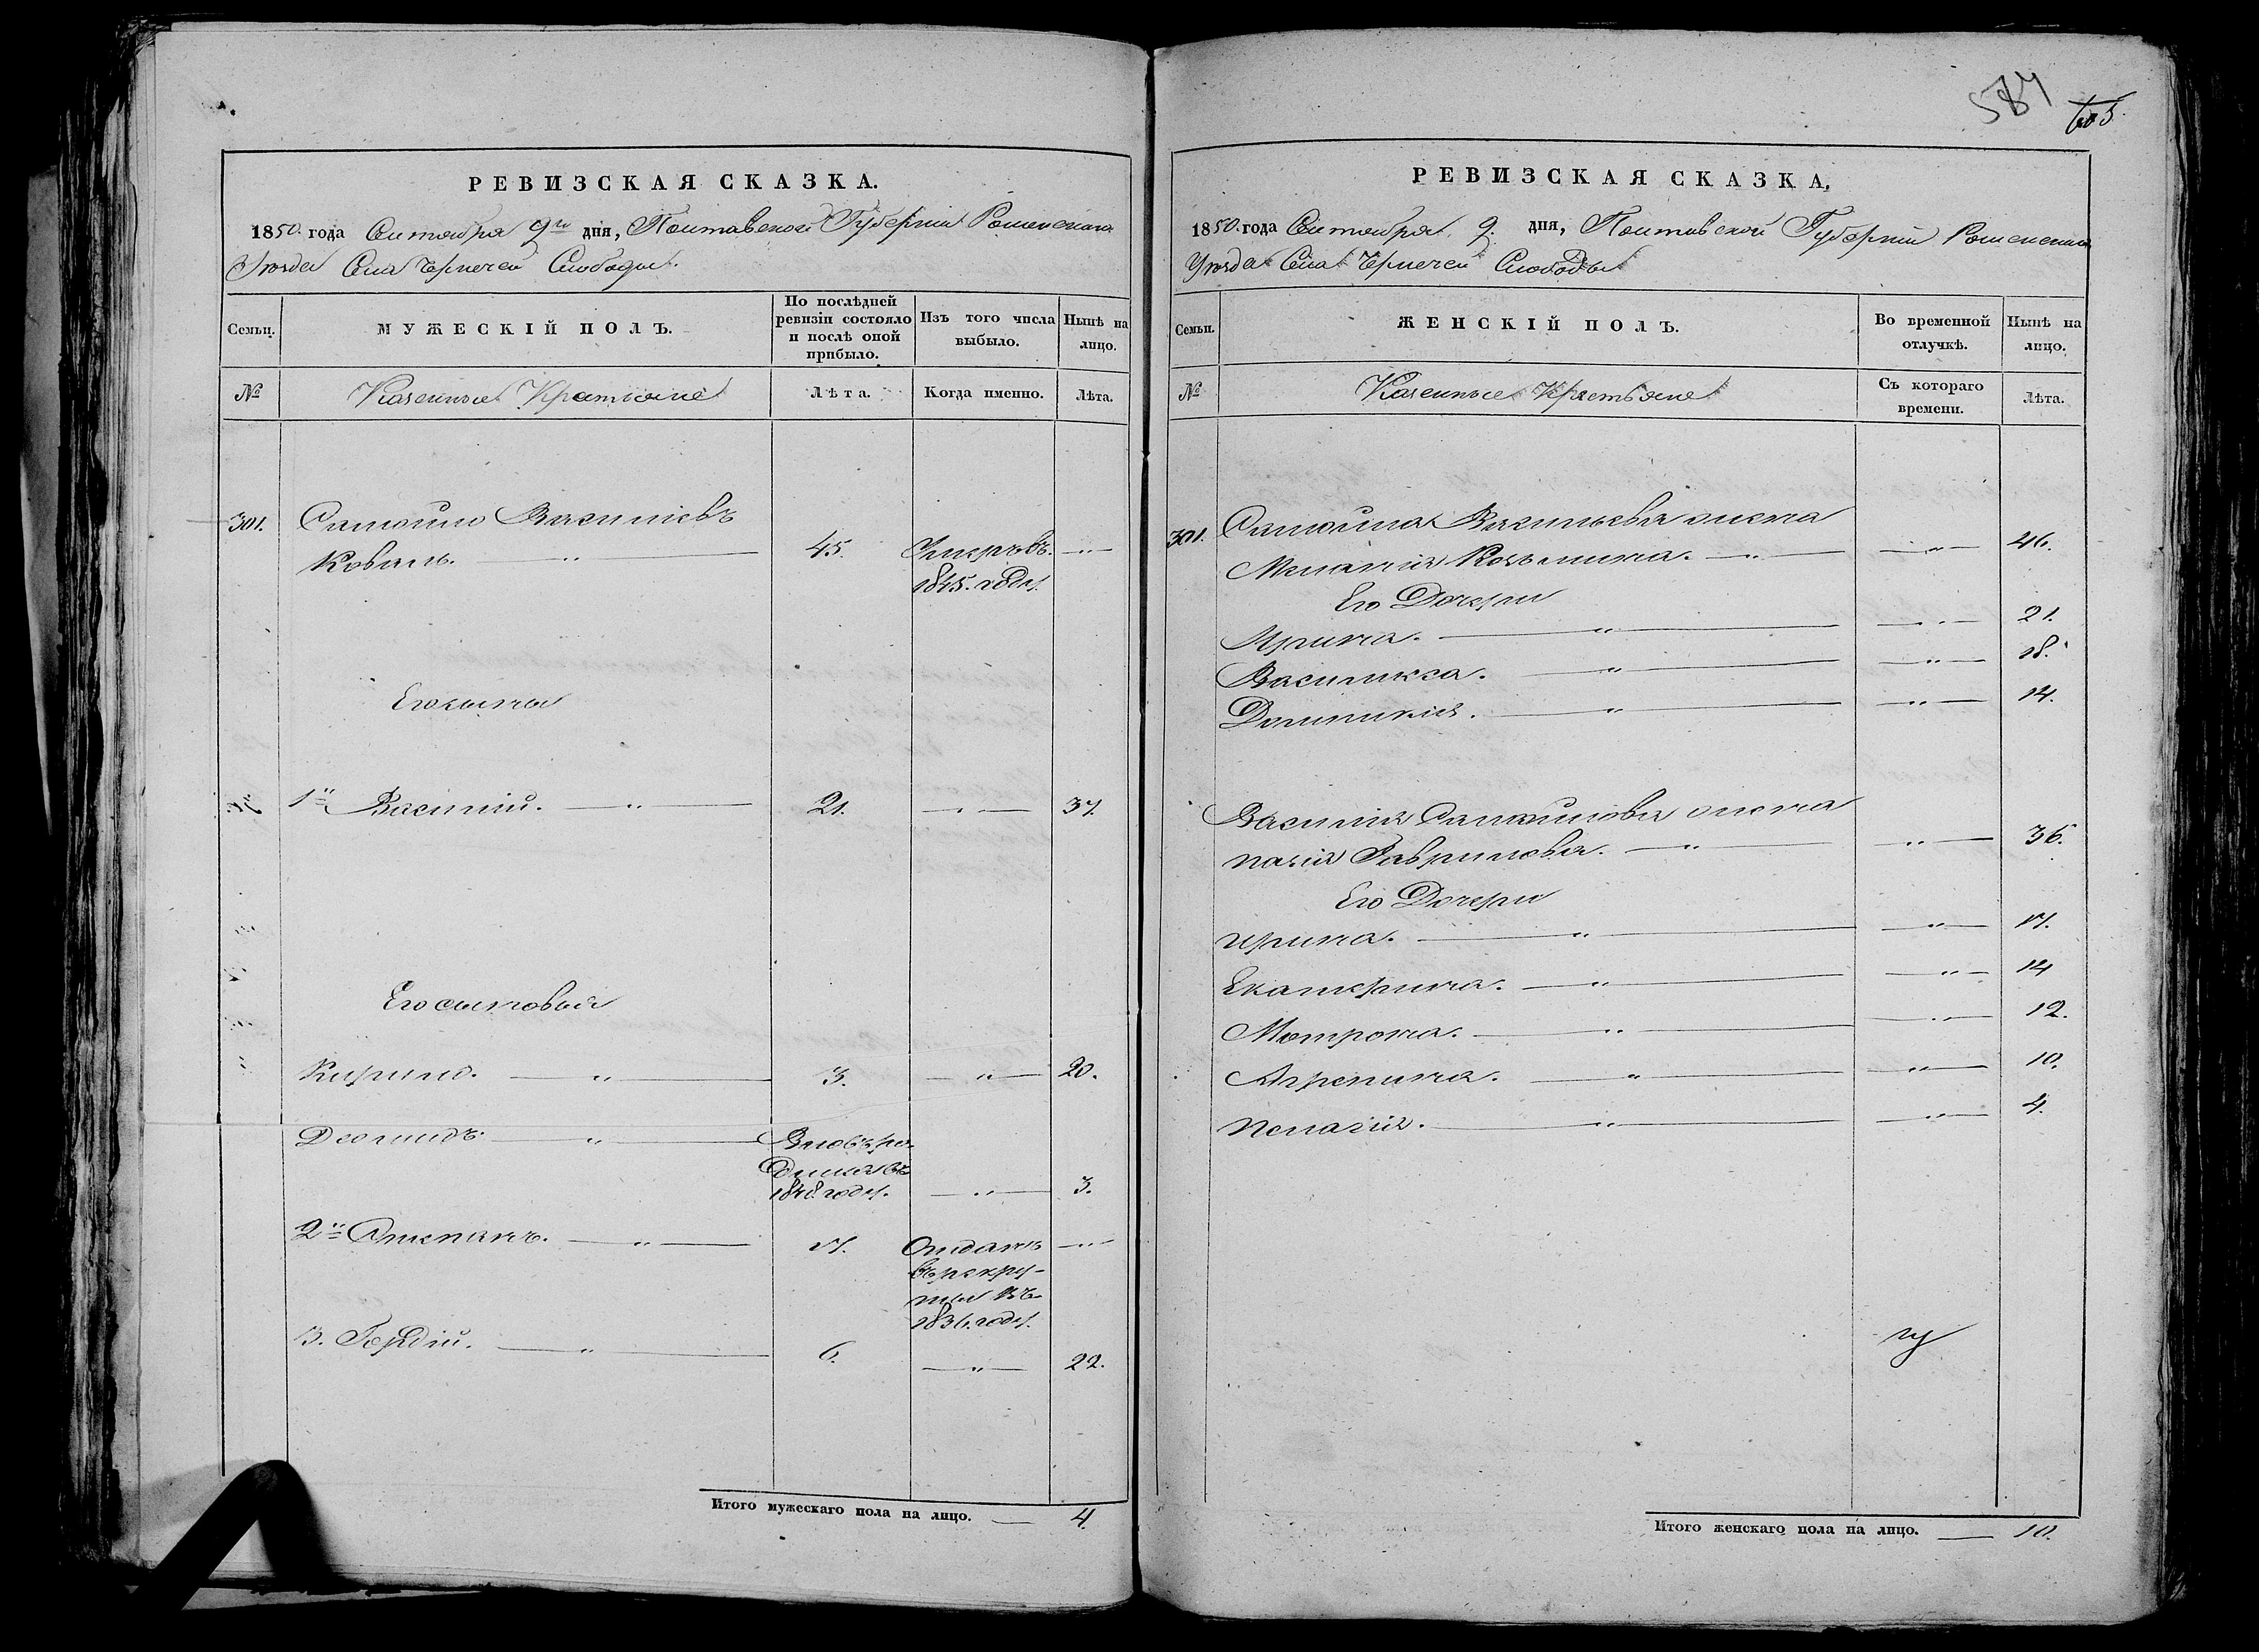 584
605.
РЕВИЗСКАЯ СКАЗКА.
1850. года Сентября 9го дня, Полтавской Губерніи Роменскаго
Уѣзда Села Чернечей Слободы.
Семьи.
МУЖЕСКІЙ ПОЛЪ.
По послѣдней ревизіи состояло и послѣ оной прибыло.
Изъ того числа выбыло.
Нынѣ на лицо.
№
Казенные Крестьяне
Лѣта.
Когда именно.
Лѣта.
301. Самойло Васильевъ
Коваль. — „ — 45. Умеръ въ — „ —
1845. году.
Его сыны
1й Василій. — „ — 21. — „ — 37.
Его сыновья
Кирило. — „ — 3. — „ — 20.
Леонидъ — „ — Вновь ро-
дился въ
1848. году. — „ — 3.
2й Степанъ. — „ — 17. Отданъ — „ —
въ рекру-
ты въ
1836. году.
3. Гордій. — „ — 6. — „ — 22.
Итого мужескаго пола на лицо. — 4.
РЕВИЗСКАЯ СКАЗКА,
1850. года Сентября 9. дня, Полтавской Губерніи Роменскаго
Уѣзда Села Чернечей Слободы
Семьи.
ЖЕНСКІЙ ПОЛЪ.
Во временной отлучкѣ.
Нынѣ на лицо.
№
Казенные Крестьяне
Съ котораго времени.
Лѣта.
301. Самойла Васильева жена
Меланія Козьмина. — „ — — „ — 46.
Его Дочери
Ирина. — „ — — „ — 21.
Василиса. — „ — — „ — 18.
Домникія. — „ — — „ — 14.
Василія Самойлова жена
Гаврилова. — „ — — „ — 36.
Его Дочери
Ирина. — „ — — „ — 17.
Екатерина. — „ — — „ — 14
Мотрона. — „ — — „ — 12.
Агрепина. — „ — — „ — 10.
Пелагія. — „ — — „ — 4.
Итого женскаго пола на лицо. — 10.